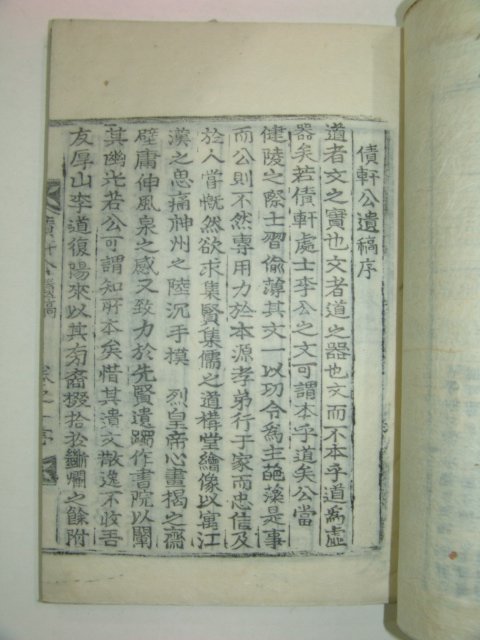 債軒公遺稿序
道者文之實也文者道之器也文而不本乎道爲虛
器矣若債軒處士李公之文可謂本乎道矣公當
健陵之際士習偷薄其文一以功令爲主葩藻是事
而公則不然專用力於本源孝弟行于家而忠信及
於人嘗慨然欲求集賢集儒之道構堂繪像以寓江
漢之思痛神州之陸沉手模 烈皇帝心畫揭之齋
壁庸伸風泉之感又致力於先賢遺躅作書院以闡
其幽光若公可謂知所本矣惜其遺文散逸不收吾
友厚山李道復陽來以其旁裔掇拾於爛之餘附
軒公遺稿
卷之一 序